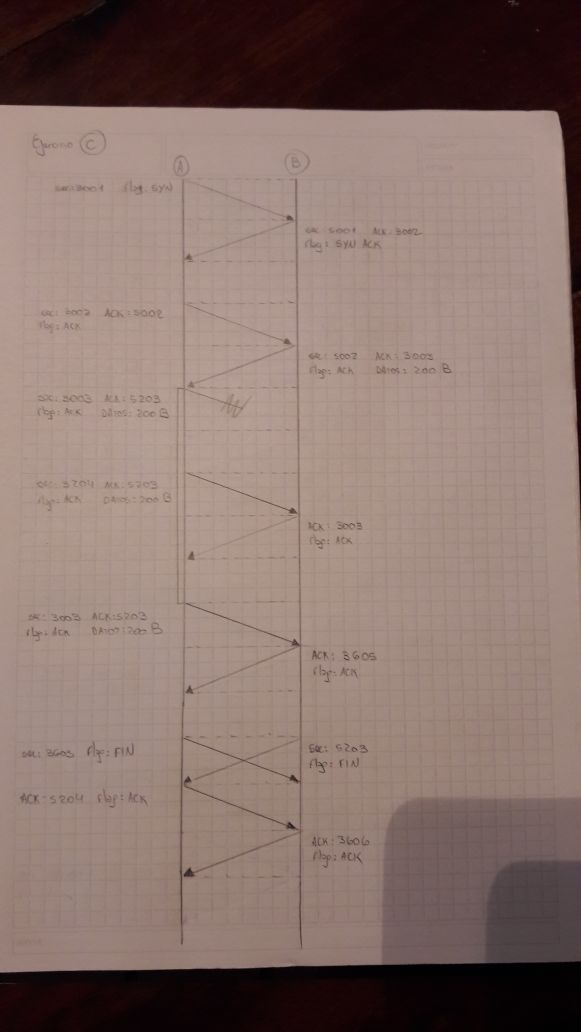 Ejercicio C
A B
sec: 3001 flag: SYN
sec: 5001 ACK: 3002
flag: SYN ACK
sec: 3002 ACK: 5002
flag: ACK
sec: 5002 ACK: 3003
flag: ACK DATOS: 200 B
sec: 3003 ACK: 5203
flag: ACK DATOS: 200 B
sec: 3204 ACK: 5203
flag: ACK DATOS: 200 B
ACK: 3003
flag: ACK
sec: 3003 ACK: 5203
flag: ACK DATOS: 200 B
ACK: 3605
flag: ACK
sec: 3605 flag: FIN
sec: 5203
flag: FIN
ACK: 5204 flag: ACK
ACK: 3606
flag: ACK